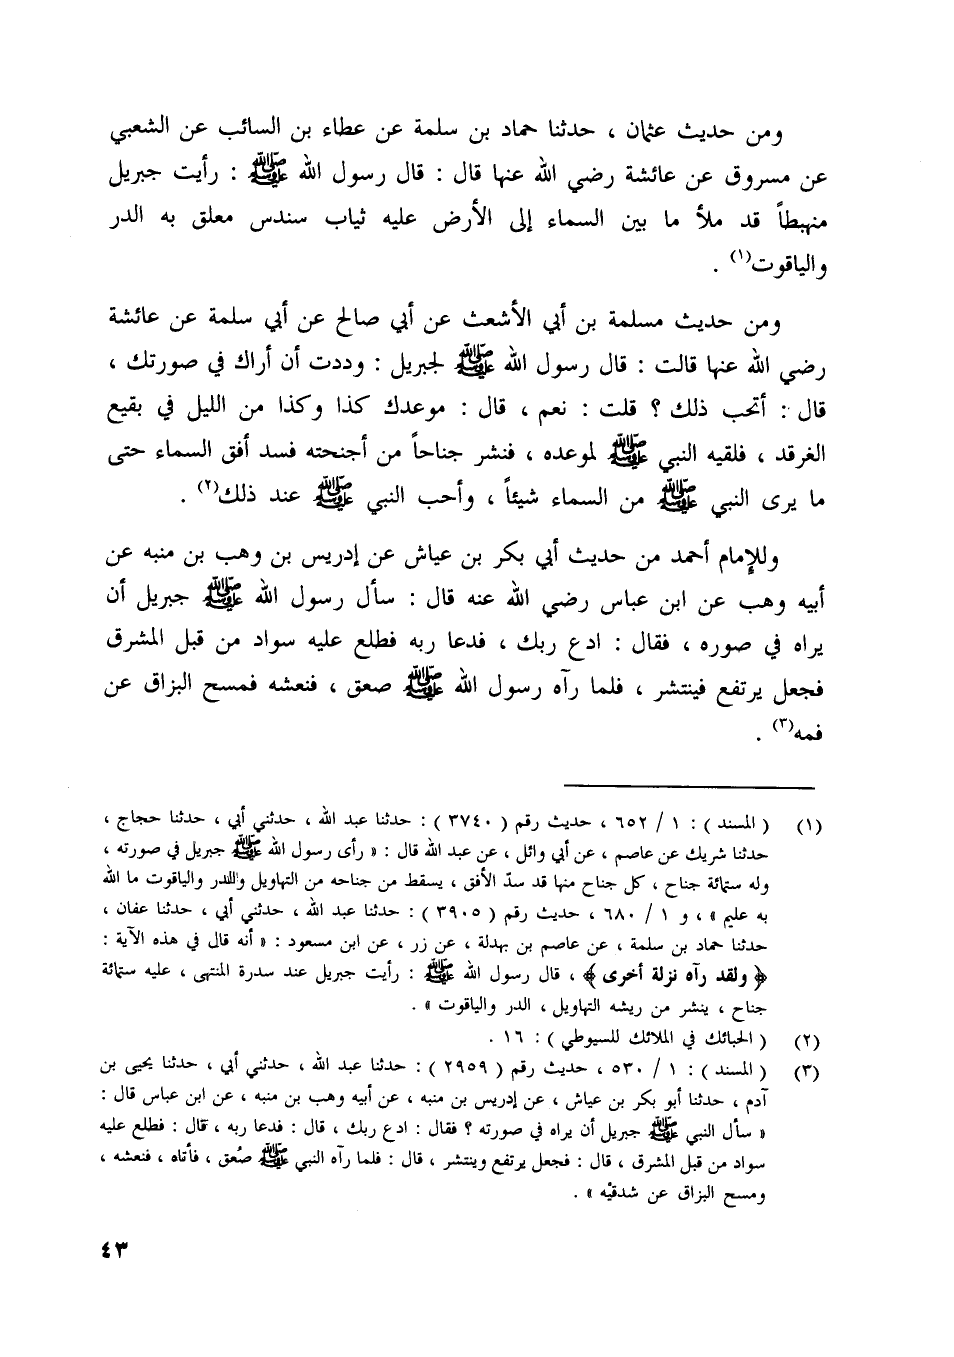 ومن حديث عثمان ، حدثنا حماد بن سلمة عن عطاء بن السائب عن الشعبي
عن مسروق عن عائشة رضي الله عنها قال : قال رسول الله ﷺ : رأيت جبريل
منهبطاً قد ملأ ما بين السماء إلى الأرض عليه ثياب سندس معلق به الدر
والياقوت(١) .
ومن حديث مسلمة بن أبي الأشعث عن أبي صالح عن أبي سلمة عن عائشة
رضي الله عنها قالت : قال رسول الله ﷺ لجبريل : وددت أن أراك في صورتك ،
قال : أتحب ذلك ؟ قلت : نعم ، قال : موعدك كذا وكذا من الليل في بقيع
الغرقد ، فلقيه النبي ﷺ لموعده ، فنشر جناحاً من أجنحته فسد أفق السماء حتى
ما يرى النبي ﷺ من السماء شيئاً ، وأحب النبي ﷺ عند ذلك(٢) .
وللإمام أحمد من حديث أبي بكر بن عياش عن إدريس بن وهب بن منبه عن
أبيه وهب عن ابن عباس رضي الله عنه قال : سأل رسول الله ﷺ جبريل أن
يراه في صوره ، فقال : ادع ربك ، فدعا ربه فطلع عليه سواد من قبل المشرق
فجعل يرتفع فينتشر ، فلما رآه رسول الله ﷺ صعق ، فنعشه فمسح البزاق عن
فمه(٣) .
(١) ( المسند ) : ١ / ٦٥٢ ، حديث رقم ( ٣٧٤٠ ) : حدثنا عبد الله ، حدثني أبي ، حدثنا حجاج ،
حدثنا شريك عن عاصم ، عن أبي وائل ، عن عبد الله قال : « رأى رسول الله ﷺ جبريل في صورته ،
وله ستمائة جناح ، كل جناح منها قد سدّ الأفق ، يسقط من جناحه من التهاويل والدر والياقوت ما الله
به عليم » ، و ١ / ٦٨٠ ، حديث رقم ( ٣٩٠٥ ) : حدثنا عبد الله ، حدثني أبي ، حدثنا عفان ،
حدثنا حماد بن سلمة ، عن عاصم بن بهدلة ، عن زر ، عن ابن مسعود : « أنه قال في هذه الآية :
﴿ ولقد رآه نزلة أخرى ﴾ ، قال رسول الله ﷺ : رأيت جبريل عند سدرة المنتهى ، عليه ستمائة
جناح ، ينشر من ريشه التهاويل ، الدر والياقوت » .
(٢) ( الحبائك في الملائك للسيوطي ) : ١٦ .
(٣) ( المسند ) : ١ / ٥٣٠ ، حديث رقم ( ٢٩٥٩ ) : حدثنا عبد الله ، حدثني أبي ، حدثنا يحيى بن
آدم ، حدثنا أبو بكر بن عياش ، عن إدريس بن منبه ، عن أبيه وهب بن منبه ، عن ابن عباس قال :
« سأل النبي ﷺ جبريل أن يراه في صورته ؟ فقال : ادع ربك ، قال : فدعا ربه ، قال : فطلع عليه
سواد من قبل المشرق ، قال : فجعل يرتفع وينتشر ، قال : فلما رآه النبي ﷺ صُعق ، فأتاه ، فنعشه ،
ومسح البزاق عن شدقيْه » .
٤٣